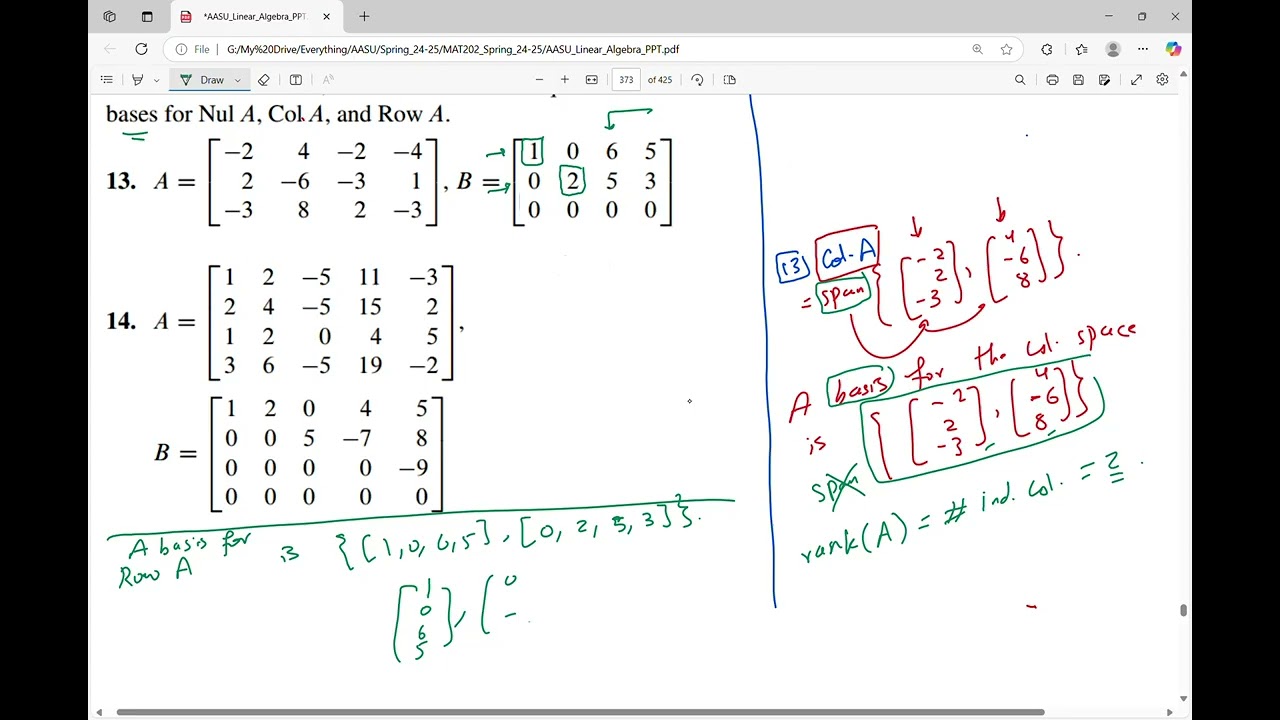 *AASU_Linear_Algebra_PPT.
File G:/My%20Drive/Everything/AASU/Spring_24-25/MAT202_Spring_24-25/AASU_Linear_Algebra_PPT.pdf
Draw 373 of 425
bases for Nul A, Col A, and Row A.
13. A = [ −2 4 −2 −4 ] , B = [ 1 0 6 5 ]
[ 2 −6 −3 1 ] [ 0 2 5 3 ]
[ −3 8 2 −3 ] [ 0 0 0 0 ]
14. A = [ 1 2 −5 11 −3 ] ,
[ 2 4 −5 15 2 ]
[ 1 2 0 4 5 ]
[ 3 6 −5 19 −2 ]
B = [ 1 2 0 4 5 ]
[ 0 0 5 −7 8 ]
[ 0 0 0 0 −9 ]
[ 0 0 0 0 0 ]
A basis for
Row A
is {[1, 0, 6, 5], [0, 2, 5, 3]}.
[ 1 ] , [ 0
0 -
6
5 ]
13) Col. A
= span { [ -2 ] , [ 4 ] } .
2 -6
-3 8
A basis for the Col. space
is { [ -2 ] , [ 4 ] }
2 -6
-3 8
span
rank(A) = # ind. Col. = 2 .